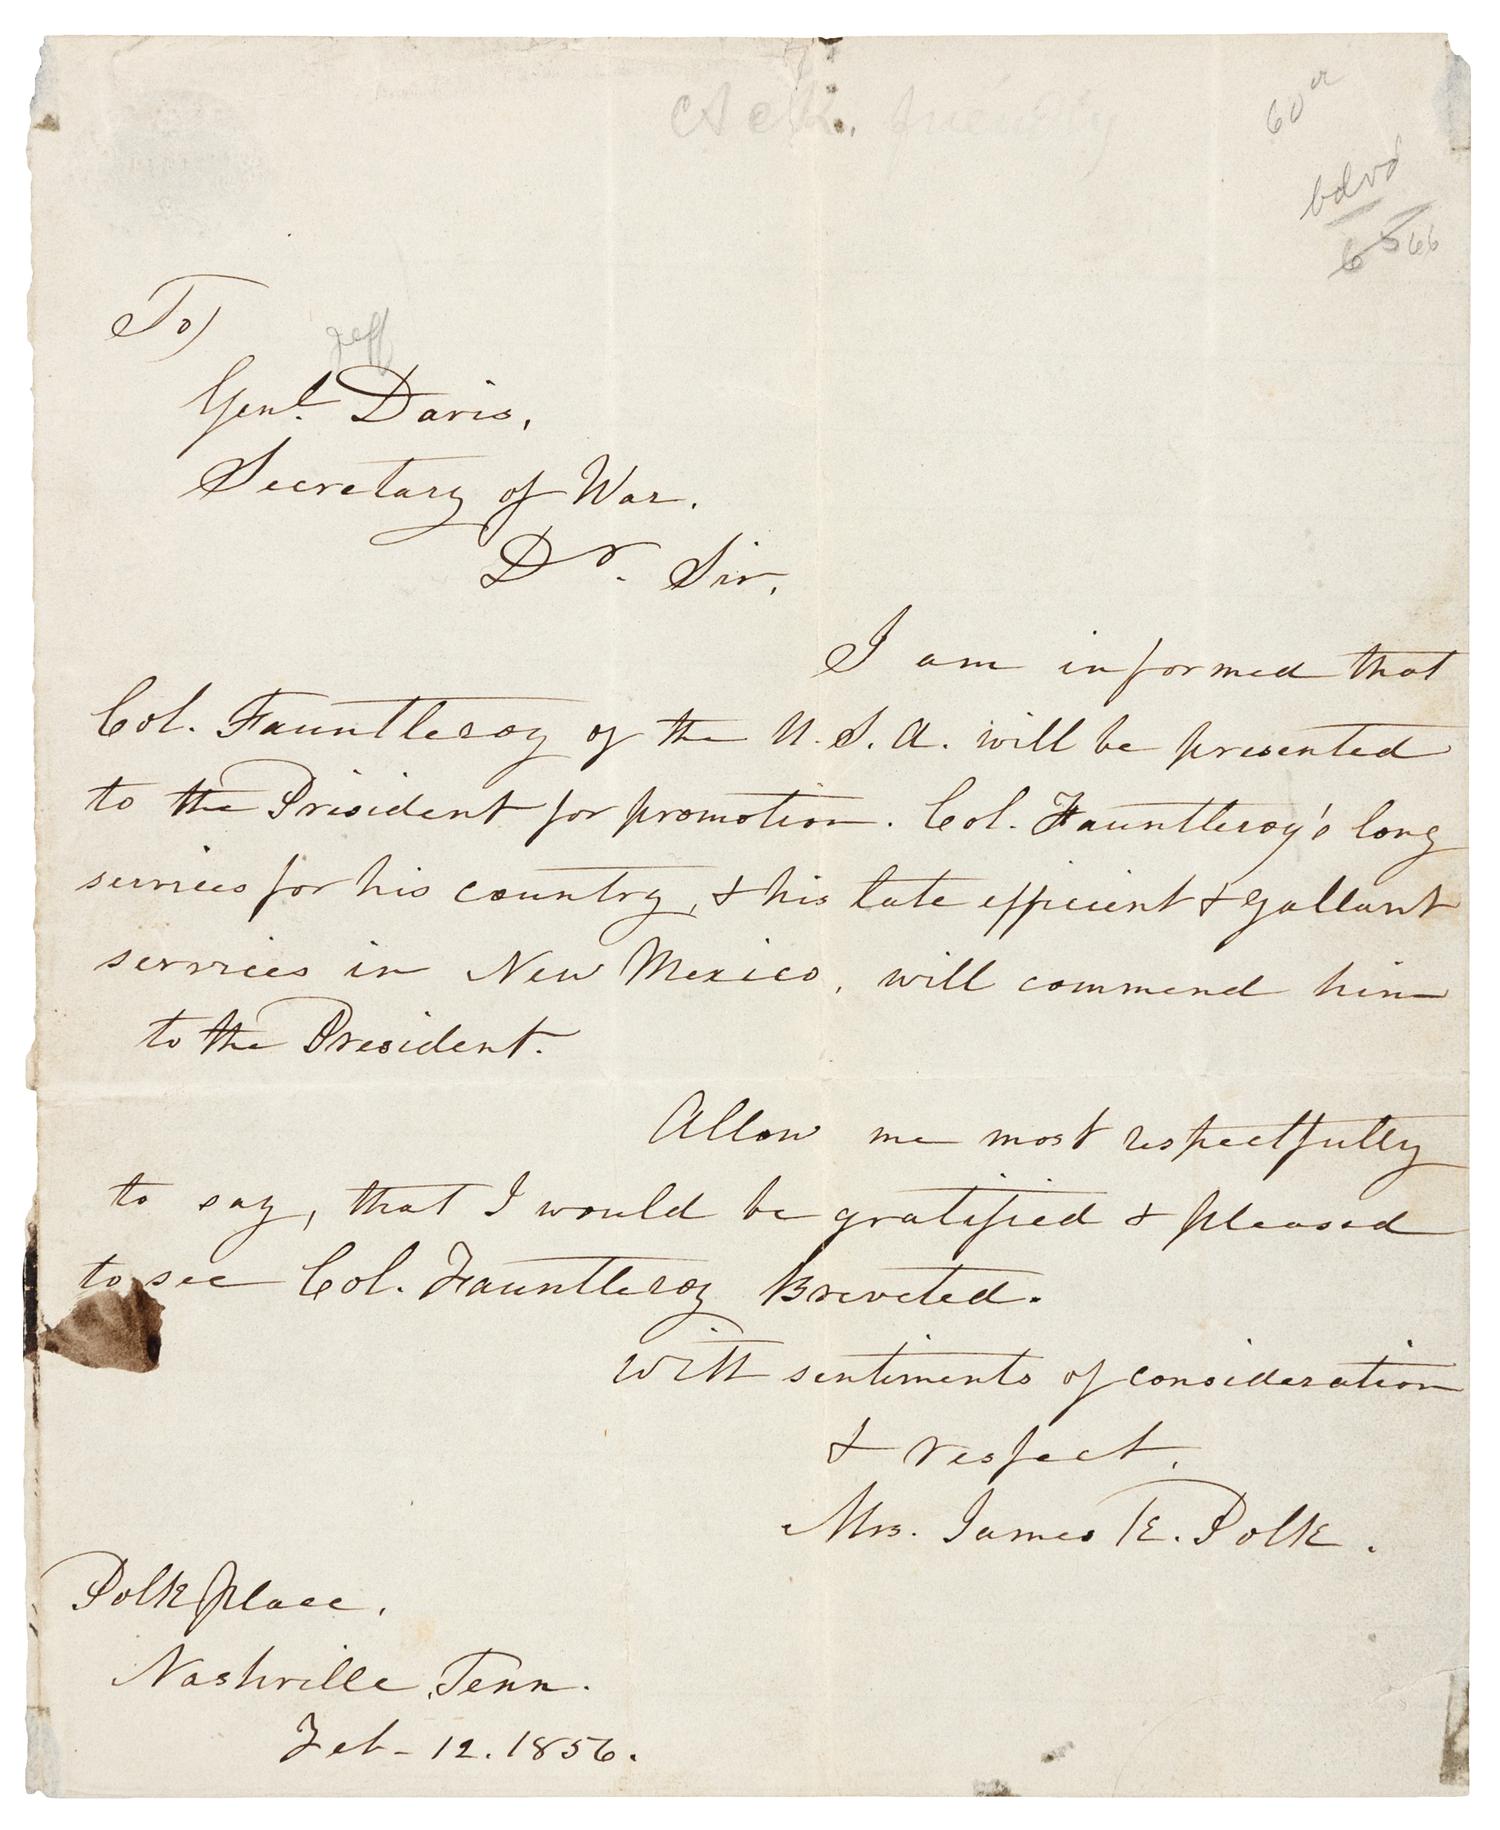 60
bdvd
66
To
jeff
Genl. Davis,
Secretary of War.
Dr. Sir,
I am informed that
Col. Fauntleroy of the U.S.A. will be presented
to the President for promotion. Col. Fauntleroy's long
services for his country, & his late efficient & gallant
services in New Mexico, will commend him
to the President.
Allow me most respectfully
to say, that I would be gratified & pleased
to see Col. Fauntleroy Breveted.
With sentiments of consideration
& respect.
Mrs. James K. Polk.
Polk Place,
Nashville, Tenn.
Feb - 12. 1856.